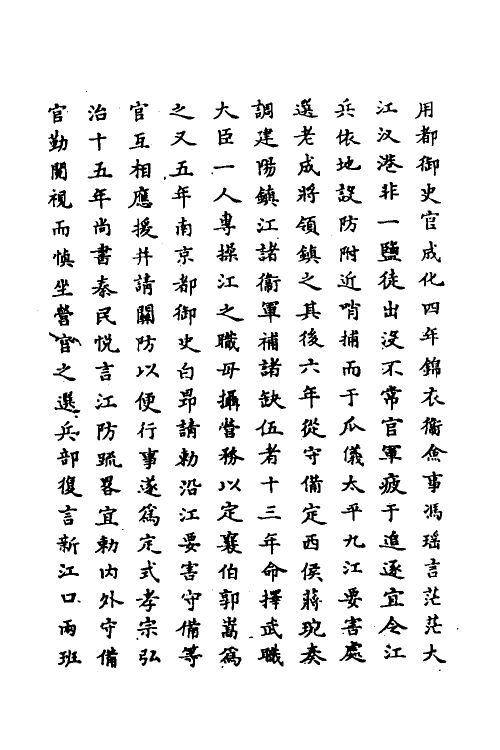 用都御史官成化四年錦衣衞僉事馮瑤言茫茫大
江汊港非一鹽徒出沒不常官軍疲于追逐宜令江
兵依地設防附近哨捕而于瓜儀太平九江要害處
選老成將領鎮之其後六年從守備定西侯蔣琬奏
調建陽鎮江諸衞軍補諸缺伍者十三年命擇武職
大臣一人專操江之職毋攝營務以定襄伯郭嵩爲
之又五年南京都御史白昻請勅沿江要害守備等
官互相應援并請關防以便行事遂爲定式孝宗弘
治十五年尚書秦民悅言江防疏畧宜勅内外守備
官勤閱視而愼坐營官之選兵部復言新江口兩班